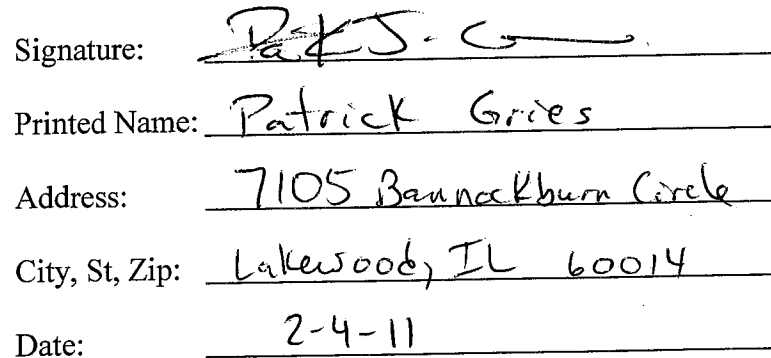 Signature: Pat J. G
Printed Name: Patrick Gries
Address: 7105 Bannockburn Circle
City, St, Zip: Lakewood, IL 60014
Date: 2-4-11